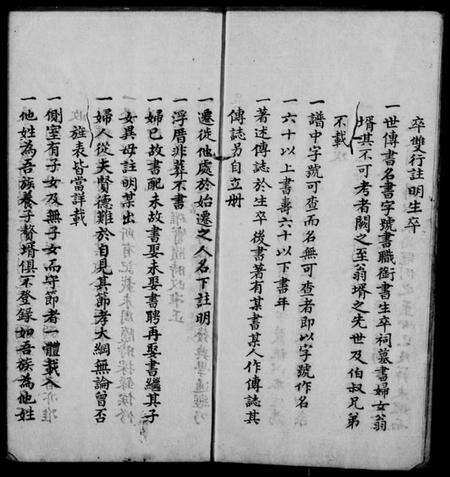 卒雙行註明生卒
一世傳書名書字號書職銜書生卒祠墓書婦女翁
壻其不可考者闕之至翁壻之先世及伯叔兄弟
不載
一譜中字號可查而名無可查者即以字號作名
一六十以上書壽六十以下書年
一著述傳誌於生卒後書著有某書某人作傳誌其
傳誌另自立册
一遷徙他處於始遷之人名下註明
一浮厝非葬不書
一婦已故書配未故書娶未娶書聘再娶書繼其子
女異母註明某出
一婦人從夫賢德難於自見其節孝大綱無論曾否
旌表皆當詳載
一側室有子女及無子女而守節者一體載入
一他姓為吾族養子贅壻俱不登錄如吾族為他姓